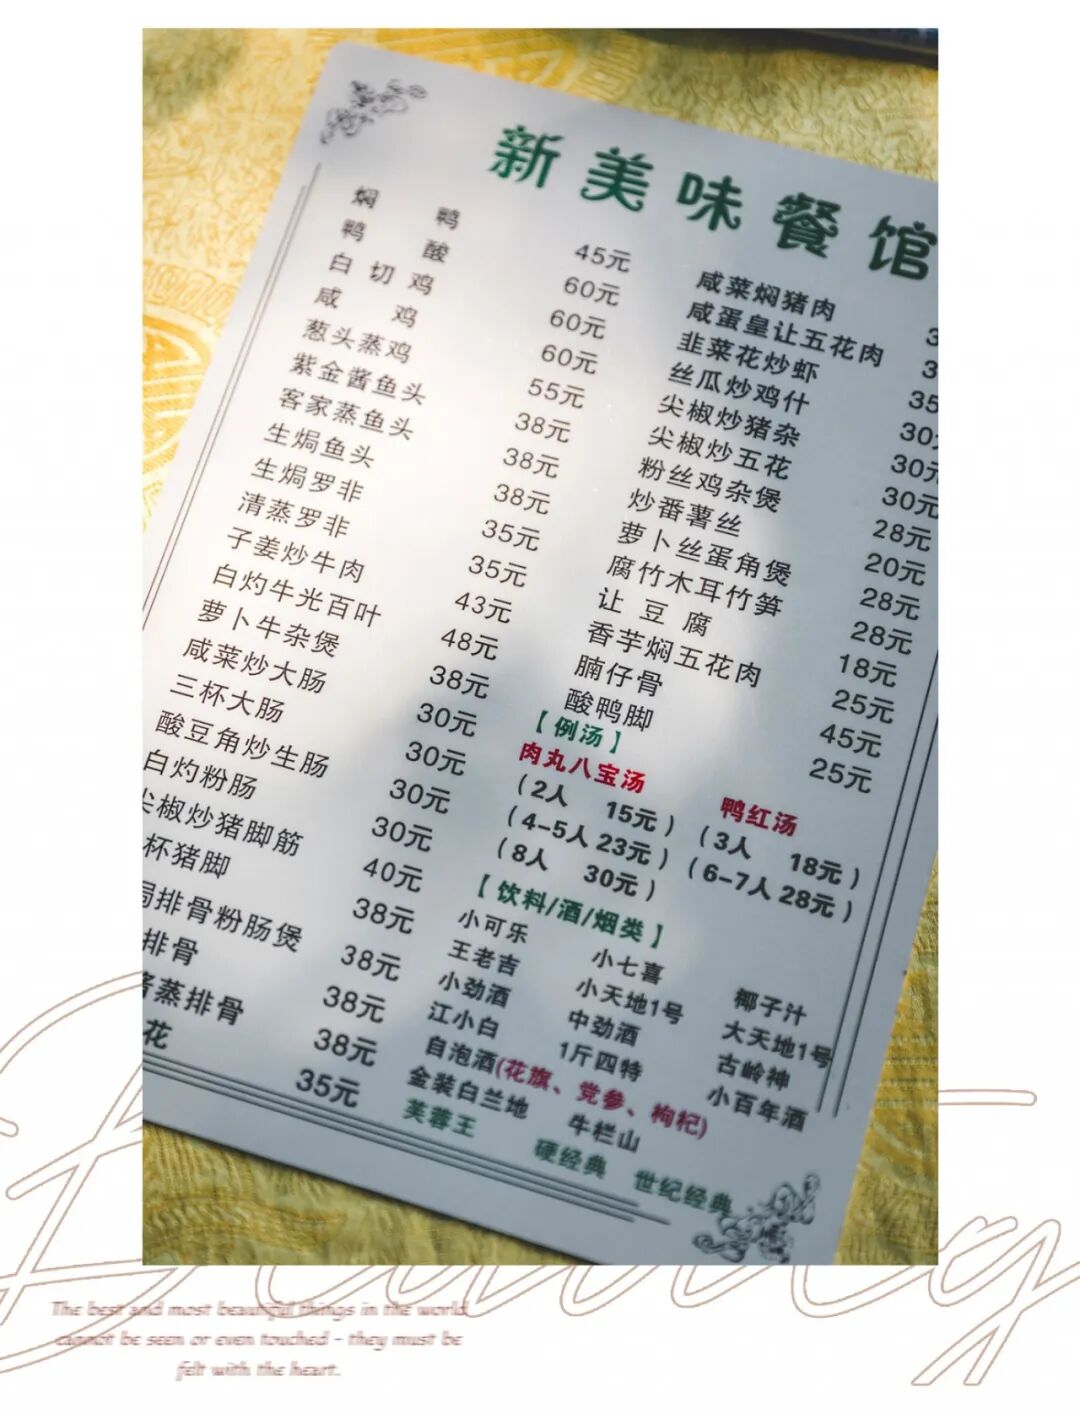 新美味餐馆
焖鸭 45元
鸭酸 60元
白切鸡 60元
咸鸡 60元
葱头蒸鸡 55元
紫金酱鱼头 38元
客家蒸鱼头 38元
生焗鱼头 38元
生焗罗非 35元
清蒸罗非 35元
子姜炒牛肉 43元
白灼牛光百叶 48元
萝卜牛杂煲 38元
咸菜炒大肠 30元
三杯大肠 30元
酸豆角炒生肠 30元
白灼粉肠 30元
尖椒炒猪脚筋 40元
杯猪脚 38元
排骨粉肠煲 38元
排骨 38元
蒸排骨 38元
花 35元
咸菜焖猪肉 3
咸蛋皇让五花肉 3
韭菜花炒虾 35
丝瓜炒鸡什 30
尖椒炒猪杂 30元
尖椒炒五花 30元
粉丝鸡杂煲 28元
炒番薯丝 20元
萝卜丝蛋角煲 28元
腐竹木耳竹笋 28元
让豆腐 18元
香芋焖五花肉 25元
腩仔骨 45元
酸鸭脚 25元
【例汤】
肉丸八宝汤 鸭红汤
(2人 15元) (3人 18元)
(4-5人 23元) (6-7人 28元)
(8人 30元)
【饮料/酒/烟类】
小可乐 小七喜 椰子汁
王老吉 小天地1号 大天地1号
小劲酒 中劲酒 古岭神
江小白 1斤四特 小百年酒
自泡酒(花旗、党参、枸杞)
金装白兰地 牛栏山
芙蓉王 硬经典 世纪经典
The best and most beautiful things in the world
cannot be seen or even touched - they must be
felt with the heart.